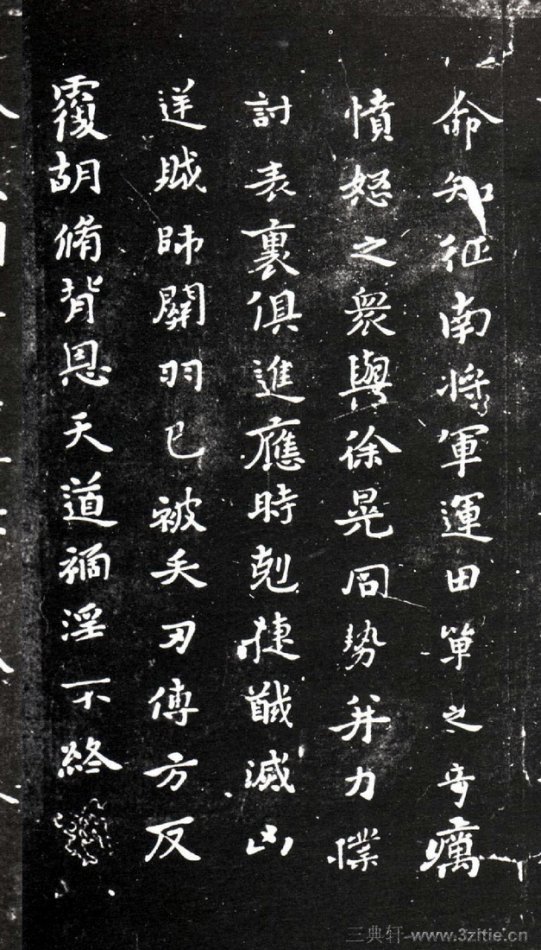 命知征南將軍運田單之奇厲
憤怒之眾與徐晃同勢并力撲
討表裏俱進應時剋捷馘滅凶
逆賊帥關羽已被矢刃傅方反
覆胡脩背恩天道禍淫不終
三典轩-www.3zitie.cn